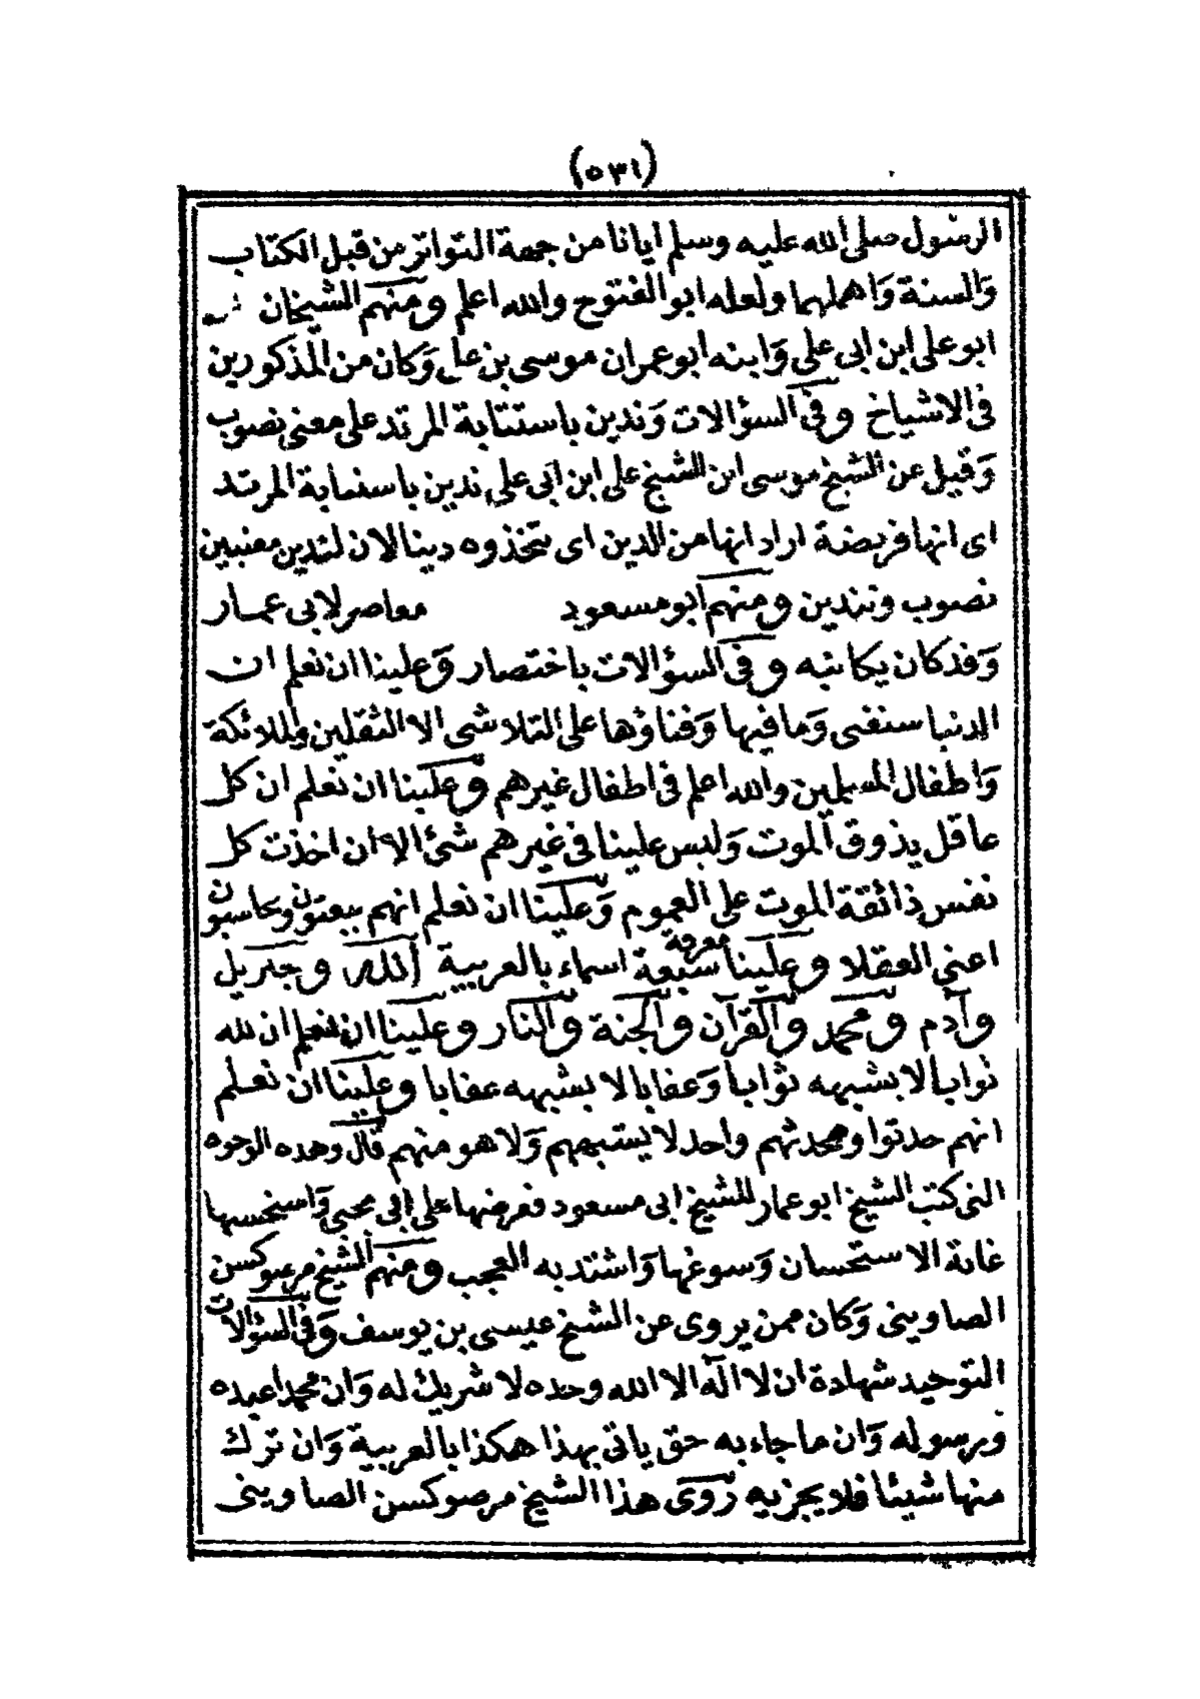 (٥٣١)
الرسول صلى الله عليه وسلم ايانا من جهة التواتر من قبل الكتاب
وَالسنة وَاهلهما ولعله ابو الفتوح والله اعلم ومنهم الشيخان
ابو على ابن ابى على وَابنه ابو عمران موسى بن على وَكان من المذكورين
فى الاشياخ وفى السؤالات وَندين باستتابة المرتد على معنى نصوب
وَقيل عن الشيخ موسى ابن الشيخ على ابن ابى على ندين باستتابة المرتد
اى انها فريضة اراد انها من الدين اى تتخذوه دينا لان لتدين معنيين
نصوب ونتدين ومنهم ابو مسعود معاصر لابى عمار
وَقد كان يكاتبه وفى السؤالات باختصار وَعلينا ان نعلم ان
الدنيا ستفنى وَما فيها وَفناؤها على التلاشى الا الثقلين والملائكة
وَاطفال المسلمين والله اعلم فى اطفال غيرهم وعلينا ان نعلم ان كل
عاقل يذوق الموت وَليس علينا فى غيرهم شئ الا ان اخذت كل
نفس ذائقة الموت على العموم وَعلينا ان نعلم انهم يبعثون ويحاسبون
اعنى العقلا وعلينا معرفة سبعة اسماء بالعربية الله وجبريل
وآدم ومحمد والقرآن والجنة والنار وعلينا ان نعلم ان لله
ثوابا لا يشبهه ثوابا وَعقابا لا يشبهه عقابا وعلينا ان نعلم
انهم حدثوا ومحدثهم واحد لا يشبههم وَلا هو منهم قال وهذه الوجوه
التى كتب الشيخ ابو عمار للشيخ ابى مسعود فعرضها على ابى يحيى وَاستحسنها
غاية الاستحسان وَسوغها وَاشتد به العجب ومنهم الشيخ مرصوكسن
الصاوينى وَكان ممن يروى عن الشيخ عيسى بن يوسف وَفى السؤالات
التوحيد شهادة ان لا اله الا الله وحده لا شريك له وَان محمدا عبده
ورسوله وَان ما جاء به حق ياتى بهذا هكذا بالعربية وَان ترك
منها شيئا فلا يجزيه رَوَى هذا الشيخ مرصوكسن الصاوينى